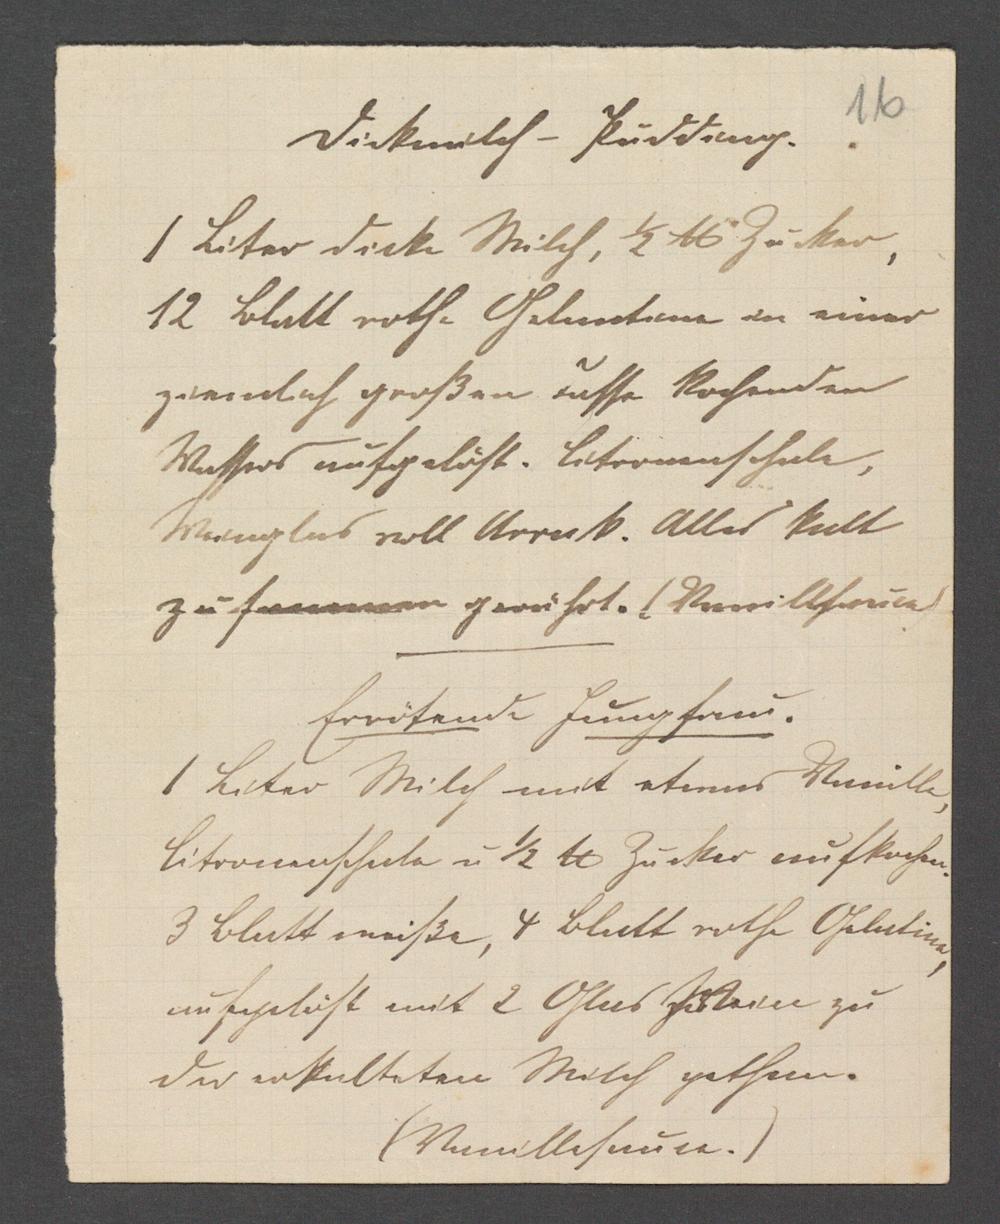 16
Dickmilch - Pudding.
1 Liter dicke Milch, ½ ℔ Zucker,
12 Blatt rothe Gelantine in einer
ziemlich großen Tasse kochenden
Wassers aufgelöst. Citronenschale,
Weinglas voll Arrak. Alles kalt
zusammen gerührt. (Vanillesauce)
Errötende Jungfrau.
1 Liter Milch mit etwas Vanille,
Citronenschale u ½ ℔ Zucker aufkochen.
3 Blatt weiße, 4 Blatt rothe Gelatine,
aufgelöst mit 2 Glas Wein zu
der erkalteten Milch gethan.
(Vanillesauce.)